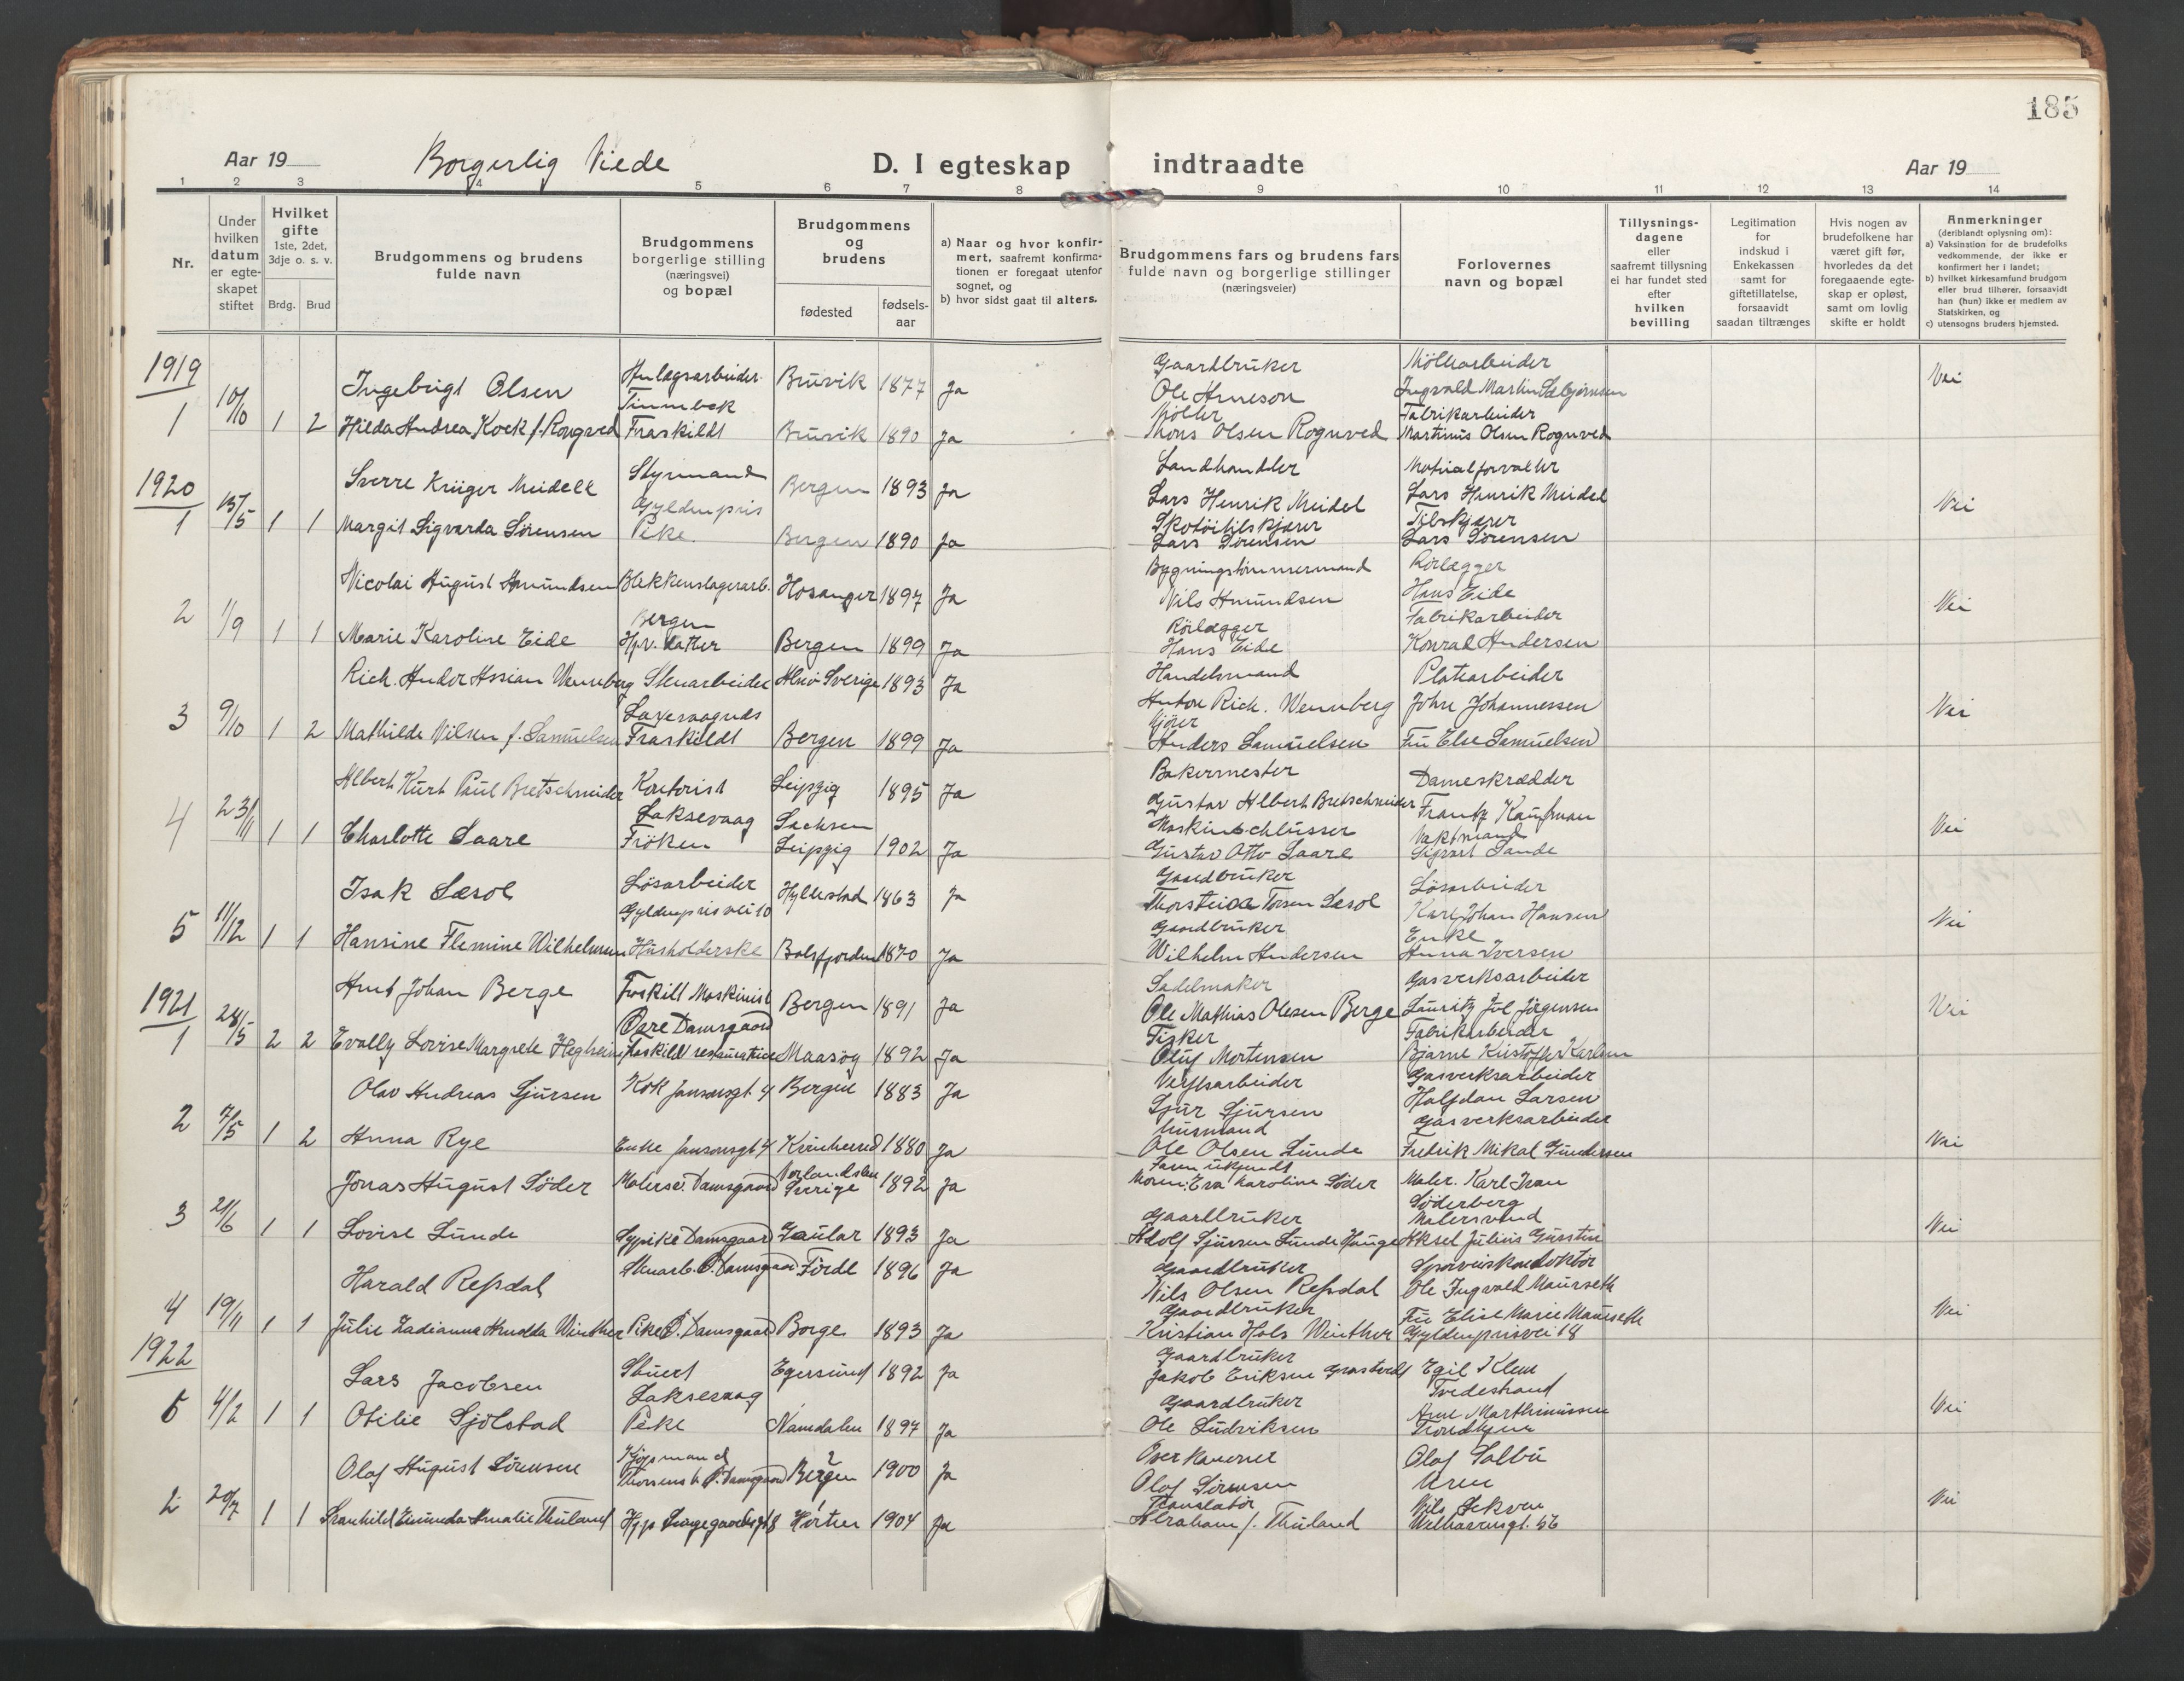 185
Aar 19
Borgerlig Viede
D. I egteskap
indtraadte
Aar 19
1 2 3 4 5 6 7 8 9 10 11 12 13 14
Nr.
Under hvilken datum er egte-skapet stiftet
Hvilket gifte
1ste, 2det, 3dje o. s. v.
Brdg. Brud
Brudgommens og brudens fulde navn
Brudgommens borgerlige stilling (næringsvei) og bopæl
Brudgommens og brudens
fødested
fødsels-aar
a) Naar og hvor konfir-mert, saafremt konfirma-tionen er foregaat utenfor sognet, og
b) hvor sidst gaat til alters.
Brudgommens fars og brudens fars fulde navn og borgerlige stillinger (næringsveier)
Forlovernes navn og bopæl
Tillysnings-dagene eller saafremt tillysning ei har fundet sted efter hvilken bevilling
Legitimation for indskud i Enkekassen samt for giftetillatelse, forsaavidt saadan tiltrænges
Hvis nogen av brudefolkene har været gift før, hvorledes da det foregaaende egte-skap er opløst, samt om lovlig skifte er holdt
Anmerkninger (deriblandt oplysning om):
a) Vaksination for de brudefolks vedkommende, der ikke er konfirmert her i landet;
b) hvilket kirkesamfund brudgom eller brud tilhører, forsaavidt han (hun) ikke er medlem av Statskirken, og
c) utensogns bruders hjemsted.
1919
1 10/10 1 2
Ingebrigt Olsen Bruvik 1877 Ja Gaardbruker Ole Arneson Ingvald Martin Nei
Hilda Andrea Kock f. Rongved Fraskildt Bruvik 1890 Ja Møller Mons Olsen Rognved Fabrikarbeider Martinus Olsen Rognved
1920
1 15/5 1 1
Sverre Krüger Meidell Styrmand Gyldenpris Bergen 1893 Ja Landhandler Lars Henrik Meidel Lars Henrik Meidel Nei
Margit Sigvarda Sørensen Pike. Bergen 1890 Ja Skotøitilskjærer Lars Sørensen Tilskjærer Lars Sørensen
2 1/9 1 1
Nicolai August Amundsen Blikkenslagerarb. Bergen Hosanger 1897 Ja Bygningstømmermand Nils Amundsen Rørlægger Hans Eide Nei
Marie Karoline Eide Hjv. datter Bergen 1899 Ja Rørlægger Hans Eide Fabrikarbeider Konrad Andersen
3 9/10 1 2
Rich. Ander Assian Wennberg Stenarbeider Alnö Sverige 1893 Ja Handelsmand Anton Rich. Wennberg Platearbeider John Johannessen Nei
Mathilde Nilsen f. Samuelsen Fraskildt Bergen 1899 Ja Anders Samuelsen Fru Else Samuelsen
4 23/11 1 1
Albert Kurt Paul Bretschneider Kontorist Laksevaag Leipzig Sachsen 1895 Ja Bakermester Gustav Albert Bretschneider Dameskrædder Frantz Kaufman Nei
Charlotte Saare Frøken Leipzig 1902 Ja Gustav Otto Saare Vaktmand Sigvart Sande
5 11/12 1 1
Isak Læsol Løsarbeider Gyldenprisvei 10 Hyllestad 1863 Ja Gaardbruker Løsarbeider Karl Johan Hansen Nei
Hansine Flemine Wilhelmsen Husholderske Balsfjorden 1870 Ja Gaardbruker Wilhelm Andersen Enke Anna Iversen
1921
1 28/5 2 2
Arnt Johan Berge Fraskilt Maskinist Øvre Damsgaard Bergen 1891 Ja Sadelmaker Ole Mathias Olesen Berge Gasverksarbeider Lauritz Jørgensen Nei
Evally Lovise Margrete Hegheim Maasøy 1892 Ja Fisker Oluf Mortensen Fabrikarbeider Bjarne Kristoffer Karlsen
2 7/5 1 2
Olav Andreas Sjursen Kok Jansonsgt. 4 Bergen 1883 Ja Verftsarbeider Sjur Sjursen Gasverksarbeider Halfdan Larsen
Anna Rye Enke Jansonsgt 4 Kvinherred 1880 Ja Husmand Ole Olsen Lunde Gasverksarbeider Fredrik Mikal Gundersen Nei
3 21/6 1 1
Jonas August Söder Malersv. Damsgaard Sverige 1892 Ja Faren ukjendt Moren: Eva Karoline Söder Maler. Karl Ivan Söderberg
Lovise Lunde Sypike Damsgaard Gaular 1893 Ja Gaardbruker Adolf Sjursen Lunde Hauge Malersvend Aksel Julius Nei
4 19/11 1 1
Harald Refsdal Stenarb. Ø. Damsgaard Førde 1896 Ja Gaardbruker Nils Olsen Refsdal Sporveiskonduktør Ole Ingvald Maurseth
Julie Ladianna Amalda Winther Pike Ø. Damsgaard Borge 1893 Ja Gaardbruker Kristian Hals Winther Fru Elise Marie Maurseth Gyldenprisvei 18 Nei
1922
5 4/2 1 1
Lars Jacobsen Stuert Laksevaag Egersund 1892 Ja Gaardbruker Jakob Eriksen Egil Klem Tvedestrand
Otilie Sjølstad Pike Namdalen 1897 Ja Gaardbruker Ole Ludviksen Arne Marthinussen Trondhjem Nei
2 20/7 1 1
Olaf August Sørensen Kjøpmand Bergen 1900 Ja Olaf Sørensen Olaf Solbu
Hjp 8 Horten 1904 Ja Translatør Abraham J. Thuland Nils Sekven Welhavensgt. 56 Nei